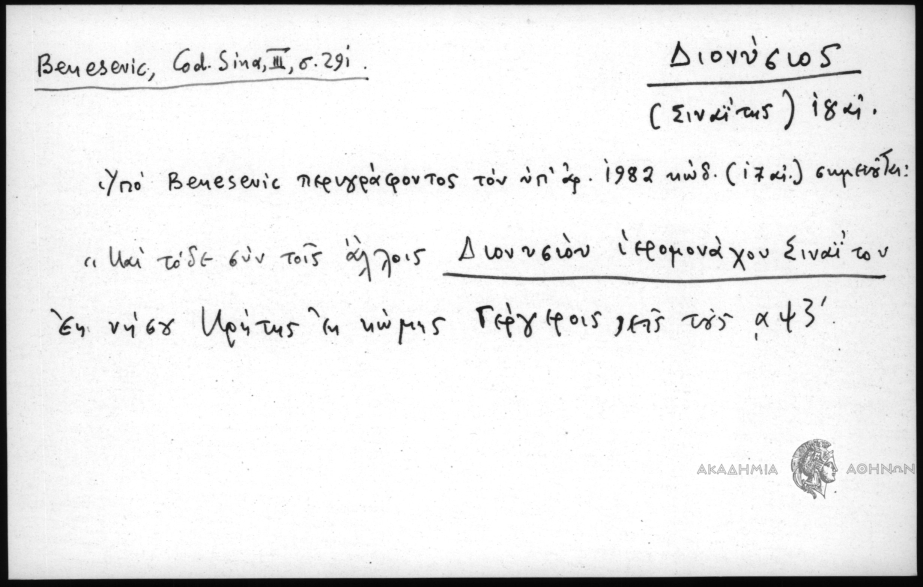 Benesevic, Cod. Sina, III, σ. 291.
Διονύσιος
(Σιναΐτης) 18 αἰ.
Ὑπό Benesevic περιγράφοντος τόν ὑπ' ἀρ. 1982 κώδ. (17 αἰ.) σημειοῦται:
"Καί τόδε σύν τοῖς ἄλλοις Διονυσίου ἱερομονάχου Σιναΐτου
Ἐκ νήσου Κρήτης ἐκ κώμης Γέργερης ͵αψξ'
ΑΚΑΔΗΜΙΑ ΑΘΗΝΩΝ